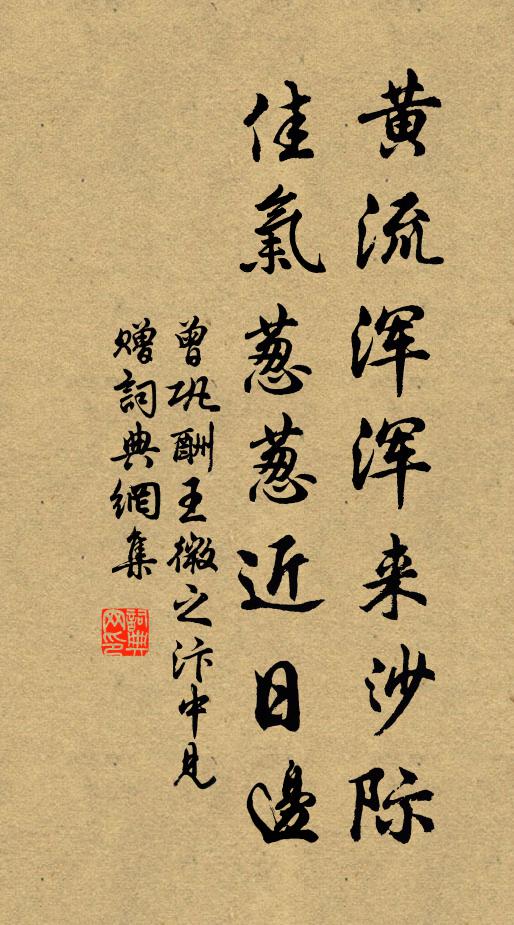 黄流浑浑来沙际
佳氣葱葱近日邊
曾巩酬王微之汴中見
赠詞典網集
詞典网印